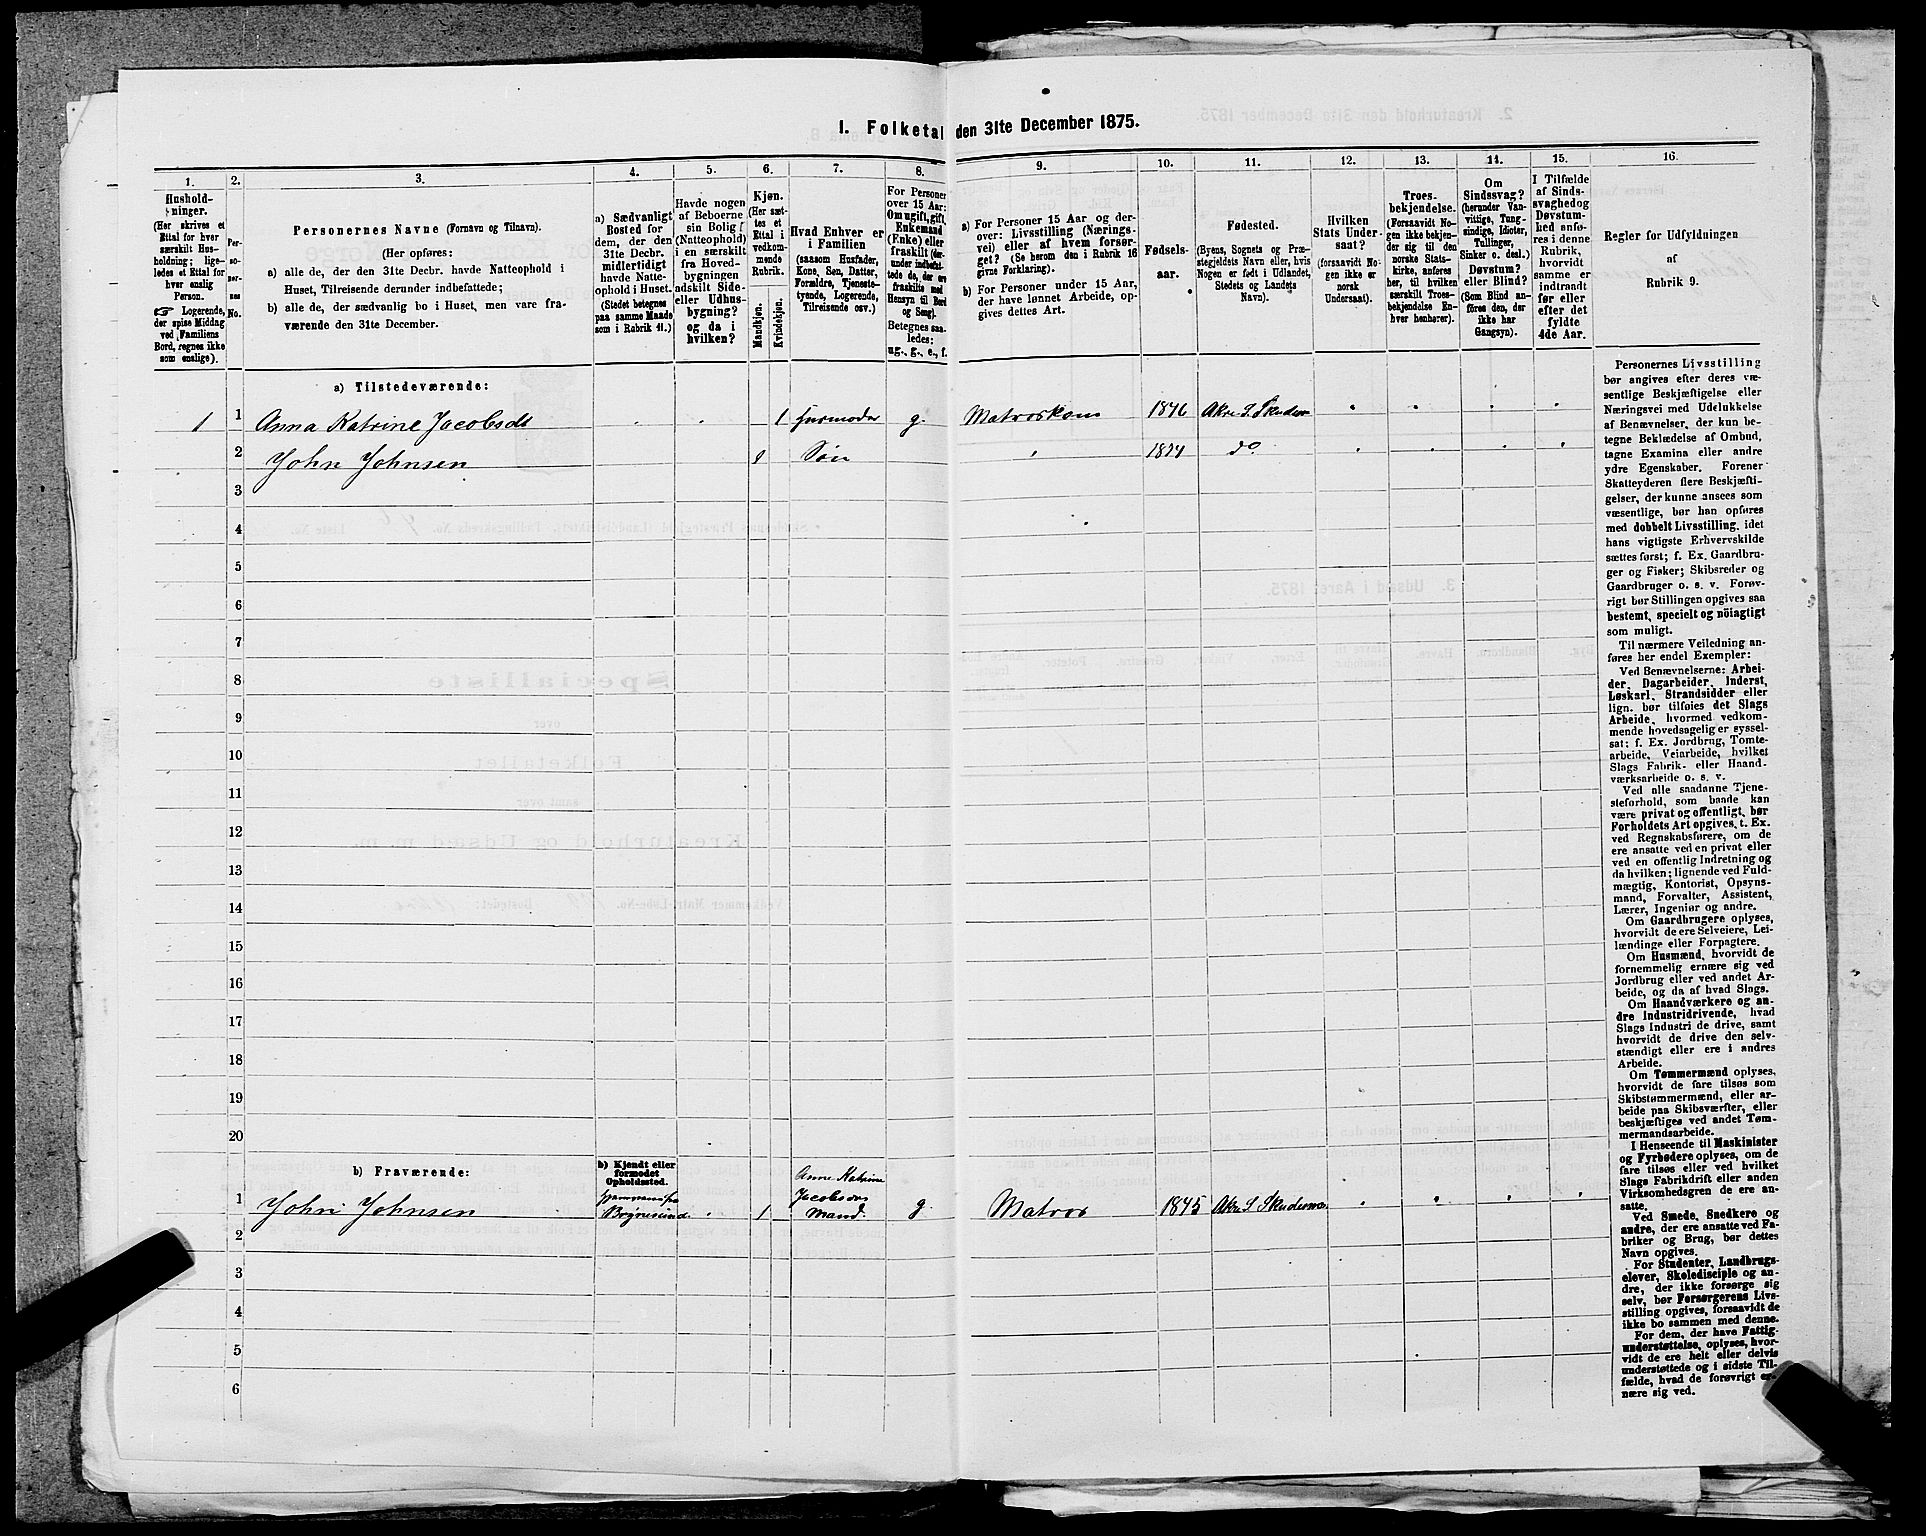 I. Folketal den 31te December 1875.
1.
2.
3.
4.
5.
6.
7.
8.
9.
10.
11.
12.
13.
14.
15.
16.
Hushold-
ninger.
(Her skrives et
Ettal for hver
særskilt Hus-
holdning; lige-
ledes et Ettal for
hver enslig
Person.
☞ Logerende,
der spise Middag
ved Familiens
Bord, regnes ikke
som enslige).
Per-
so-
ner-
nes
No.
Personernes Navne (Fornavn og Tilnavn).
(Her opføres:
a) alle de, der den 31te Decbr. havde Natteophold i
Huset, Tilreisende derunder indbefattede;
b) alle de, der sædvanlig bo i Huset, men vare fra-
værende den 31te December.
a) Sædvanligt
Bosted for
dem, der den
31te Decbr.
midlertidigt
havde Natte-
ophold i Huset.
(Stedet betegnes
paa samme Maade
som i Rubrik 11.)
Havde nogen
af Beboerne
sin Bolig
(Natteophold)
i en særskilt
fra Hoved-
bygningen
adskilt Side-
eller Udhus-
bygning?
og da i
hvilken?
Kjøn.
(Her sæt-
tes et
Ettal i
vedkom-
mende
Rubrik.
Mandkjøn.
Kvindekjøn.
Hvad Enhver er
i Familien
(saasom Husfader,
Kone, Søn, Datter,
Forældre, Tjeneste-
tyende, Logerende,
Tilreisende osv.)
For Personer
over 15 Aar:
Om ugift, gift,
Enkemand
(Enke) eller
fraskilt (der-
under indbefat-
tede de, der ere
fraskilte med
Hensyn til Bord
og Seng).
Betegnes saa-
ledes:
ug., g., e., f.
a) For Personer 15 Aar og der-
over: Livsstilling (Nærings-
vei) eller af hvem forsør-
get? (Se herom den i Rubrik 16
givne Forklaring).
b) For Personer under 15 Aar,
der have lønnet Arbeide, op-
gives dettes Art.
Fødsels-
aar.
Fødested.
(Byens, Sognets og Præ-
stegjeldets Navn eller, hvis
Nogen er født i Udlandet,
Stedets og Landets
Navn).
Hvilken
Stats Under-
saat?
(forsaavidt No-
gen ikke er
norsk
Undersaat).
Troes-
bekjendelse.
(Forsaavidt No-
gen ikke bekjen-
der sig til den
norske Stats-
kirke, anføres
her, til hvilken
særskilt Troes-
bekjendelse En-
hver henhører).
Om
Sindssvag?
(herunder Van-
vittige, Tung-
sindige, Idioter,
Tullinger,
Sinker o. desl.)
Døvstum?
eller Blind?
(Som Blind an-
føres den, der
ikke har
Gangsyn).
I Tilfælde
af Sinds-
svaghed og
Døvstum-
hed anfø-
res i denne
Rubrik,
hvorvidt
samme er
indtraadt
før eller
efter det
fyldte
4de Aar.
Regler for Udfyldningen
af
Rubrik 9.
a) Tilstedeværende:
1 1 Anna Katrine Jacobsdt 1 Husmoder g. Matroskone 1846 Akre S. Skudesnæs
2 John Johnsen 1 Søn 1874 do
3
4
5
6
7
8
9
10
11
12
13
14
15
16
17
18
19
20
b) Fraværende:
b) Kjendt eller
formodet
Opholdssted.
1 John Johnsen 1 Anne Katrine
Jacobsdts
Mand. g. Matros 1845 Akre S. Skudesnæs
2
3
4
5
6
Personernes Livsstilling
bør angives efter deres væ-
sentlige Beskjæftigelse eller
Næringsvei med Udelukkelse
af Benævnelser, der kun be-
tegne Beklædelse af Ombud,
tagne Examina eller andre
ydre Egenskaber. Forener
Skatteyderen flere Beskjæfti-
gelser, der kunne ansees som
væsentlige, bør han opføres
med dobbelt Livsstilling, idet
hans vigtigste Erhvervskilde
sættes først; f. Ex. Gaardbru-
ger og Fisker; Skibsreder og
Gaardbruger o. s. v. Forøv-
rigt bør Stillingen opgives saa
bestemt, specielt og nöiagtigt
som muligt.
Til nærmere Veiledning an-
føres her endel Exempler:
Ved Benævnelserne: Arbei-
der, Dagarbeider, Inderst,
Løskarl, Strandsidder eller
lign. bør tilføies det Slags
Arbeide, hvormed vedkom-
mende hovedsagelig er syssel-
sat; f. Ex. Jordbrug, Tomte-
arbeide, Veiarbeide, hvilket
Slags Fabrik- eller Haand-
værksarbeide o. s. v.
Ved alle saadanne Tjene-
steforhold, som baade kan
være privat og offentligt, bør
Forholdets Art opgives, t. Ex.
ved Regnskabsførere, om de
ere ansatte ved en privat eller
ved en offentlig Indretning og
da hvilken; lignende ved Fuld-
mægtig, Kontorist, Opsyns-
mand, Forvalter, Assistent,
Lærer, Ingeniør og andre.
Om Gaardbrugere oplyses,
hvorvidt de ere Selveiere, Lei-
lændinge eller Forpagtere.
Om Husmænd, hvorvidt de
fornemmelig ernære sig ved
Jordbrug eller ved andet Ar-
beide, og da af hvad Slags.
Om Haandværkere og an-
dre Industridrivende, hvad
Slags Industri de drive, samt
hvorvidt de drive den selv-
stændigt eller ere i andres
Arbeide.
Om Tømmermænd oplyses,
hvorvidt de fare tilsøs som
Skibstømmermænd, eller ar-
beide paa Skibsværfter, eller
beskjæftiges ved andet Tøm-
mermandsarbeide.
I Henseende til Maskinister
og Fyrbødere oplyses, om de
fare tilsøs eller ved hvilket
Slags Fabrikdrift eller anden
Virksomhedsgren de ere an-
satte.
Ved Smede, Snedkere og
andre, der ere ansatte ved Fa-
briker og Brug, bør dettes
Navn opgives.
For Studenter, Landbrugs-
elever, Skoledisciple og an-
dre, der ikke forsørge sig
selv, bør Forsørgerens Livs-
stilling opgives, forsaavidt de
ikke bo sammen med denne.
For dem, der have Fattig-
understøttelse, oplyses, hvor-
vidt de ere helt eller delvis
understøttede og i sidste Til-
fælde, hvad de forøvrigt er-
nære sig ved.